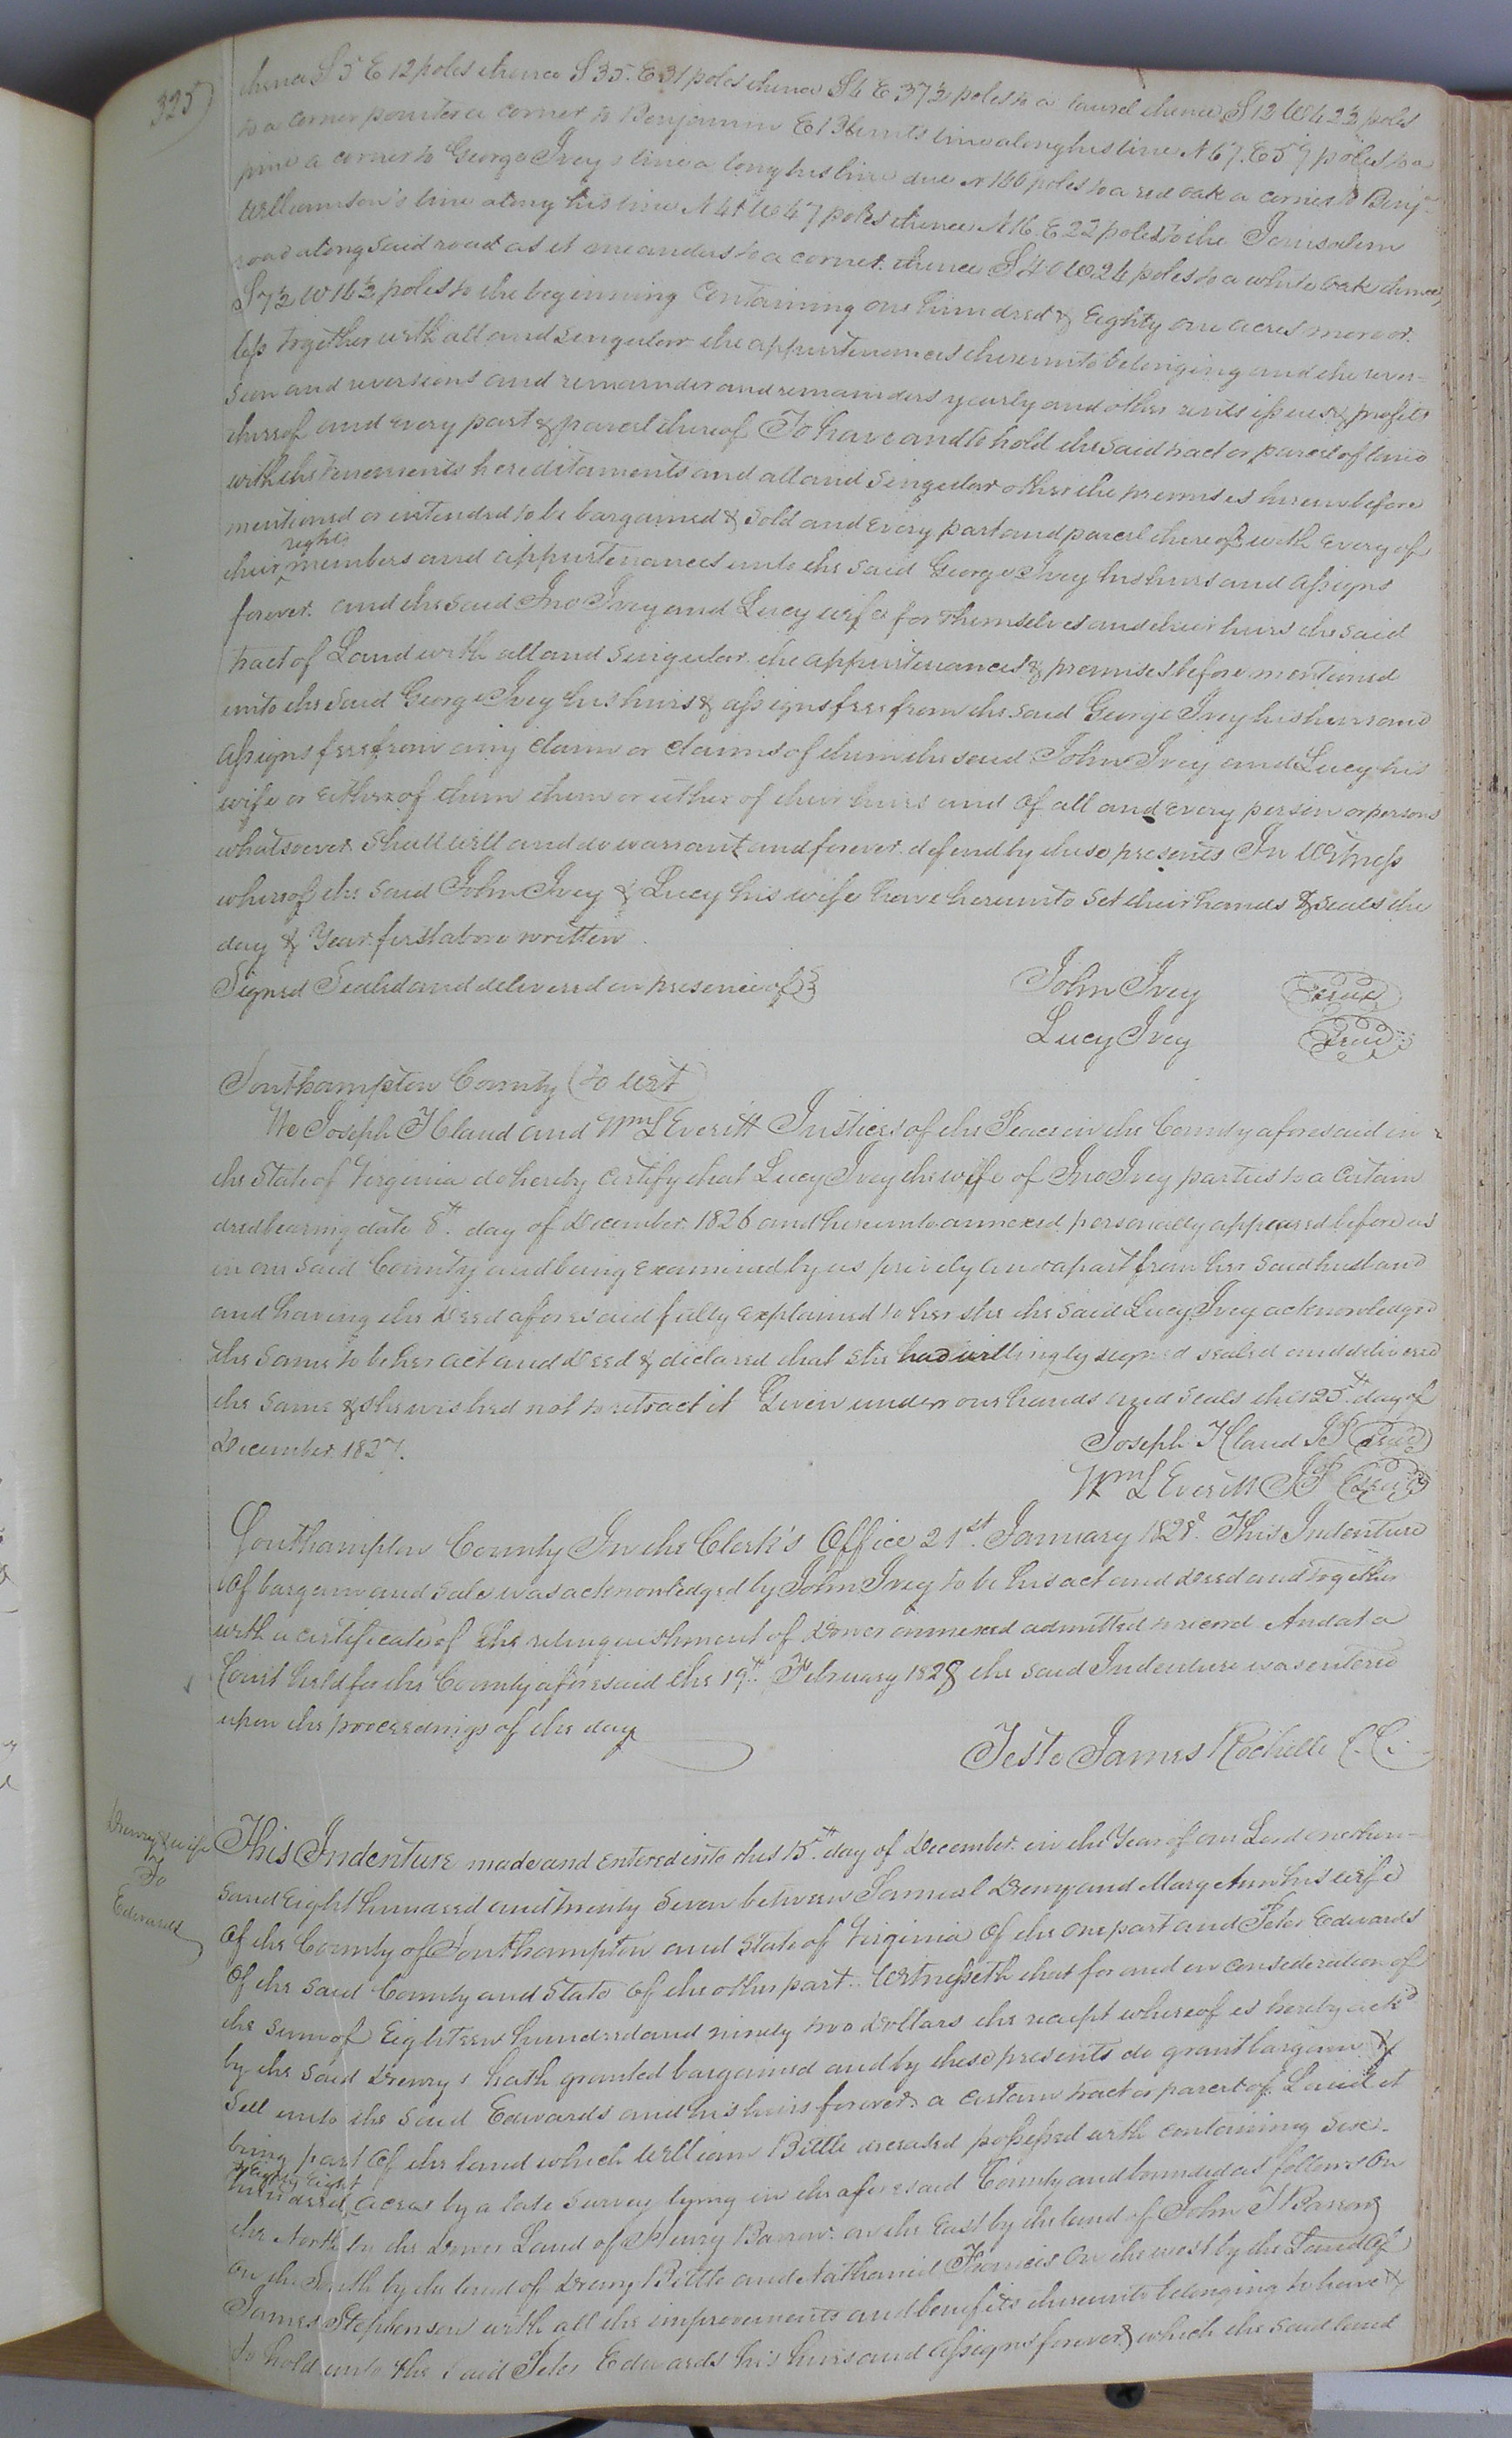 325
thence S 5 E 12 poles thence S 35. E 31 poles thence S 6 E 37½ poles to a laurel thence S 12 W 42½ poles
to a corner pointer a corner to Benjamin E Blunts line along his line N 67. E 59 poles to a
pine a corner to George Ivey s line along his line due N 166 poles to a red oak a corner to Benjn
Williamson's line along his line N 41 W 47 poles thence N 16. E 22 poles to the Jerusalem
road along said road as it meanders to a corner. thence S 40 W 26 poles to a white oak thence
S 7½ W 16½ poles to the beginning Containing one hundred & Eighty one acres more or
less together with all and singular the appurtenances thereunto belonging and the rever=
sion and reversions and remainder and remainders yearly and other rents issues & profits
thereof and every part & parcel thereof To have and to hold the said tract or parcel of land
with the tenements hereditaments and all and singular other the premises herein before
mentioned or intended to be bargained & sold and every part and parcel thereof with every of
their rights members and appurtenances unto the said George Ivey his heirs and assigns
forever. and the said Jno Ivey and Lucy wife for themselves and their heirs the said
tract of Land with all and singular the appurtenances & premises before mentioned
unto the said George Ivey his heirs & assigns free from the said George Ivey his heirs and
assigns free from any claim or claims of them the said John Ivey and Lucy his
wife or either of them them or either of their heirs and of all and every person or persons
whatsoever shall will and do warrant and forever defend by these presents In Witness
whereof the said John Ivey & Lucy his wife have hereunto set their hands & seals the
day & Year first above written
Signed Sealed and delivered in presence of } John Ivey Seal
Lucy Ivey Seal
Southampton County (to wit)
We Joseph T Claud and Wm L Everitt Justices of the Peace in the County aforesaid in
the State of Virginia do hereby certify that Lucy Ivey the wife of Jno Ivey parties to a certain
deed bearing date 8th. day of December 1826 and hereunto annexed, personally appeared before us
in our said County and being examined by us privily and apart from her said husband
and having the Deed aforesaid fully explained to her she the said Lucy Ivey acknowledged
the same to be her act and Deed & declared that she had willingly signed sealed and delivered
the same & she wished not to retract it Given under our hands and seals this 25th day of
December 1827. Joseph T Claud JP Seal
Wm L Everitt JP Seal
Southampton County In the Clerk's Office 21st. January 1828. This Indenture
of bargain and sale was acknowledged by John Ivey to be his act and deed and together
with a certificate of the relinquishment of Dower annexed admitted to record And at a
Court held for the County aforesaid the 19th. February 1828 the said Indenture was entered
upon the proceedings of the day
Teste James Rochelle C.C.
Drewry & wife
To
Edwards
This Indenture made and entered into this 15th. day of December in the Year of our Lord one thou=
sand Eight hundred and twenty Seven between Samuel Drewry and Mary Ann his wife
of the County of Southampton and State of Virginia of the one part and Peter Edwards
of the said County and State of the other part. Witnesseth that for and in consideration of
the sum of Eighteen hundred and ninety two Dollars the receipt whereof is hereby ackd
by the said Drewry s hath granted bargained and by these presents do grant bargain &
Sell unto the said Edwards and his heirs forever a certain tract or parcel of Land it
being part of the land which William Bittle deceased possessed with containing six=
hundred & Eighty Eight acres by a late survey lying in the aforesaid County and bounded as follows On
the North by the Dower Land of Henry Barrow. on the East by the land of John T Barrow
on the South by the land of Drewry Bittle and Nathaniel Francis On the west by the Land of
James Stephenson with all the improvements and benefits thereunto belonging to have &
to hold unto the said Peter Edwards his heirs and assigns forever which the said land